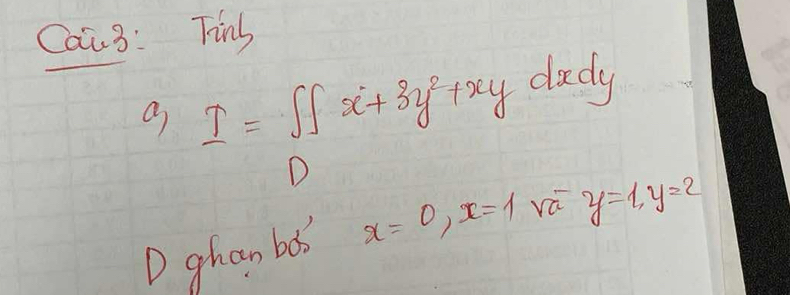 Câu 3: Tính
a, I = ∬ x + 3y² + xy dxdy
D
D ghạn bởi x = 0, x = 1 và y = 1, y = 2